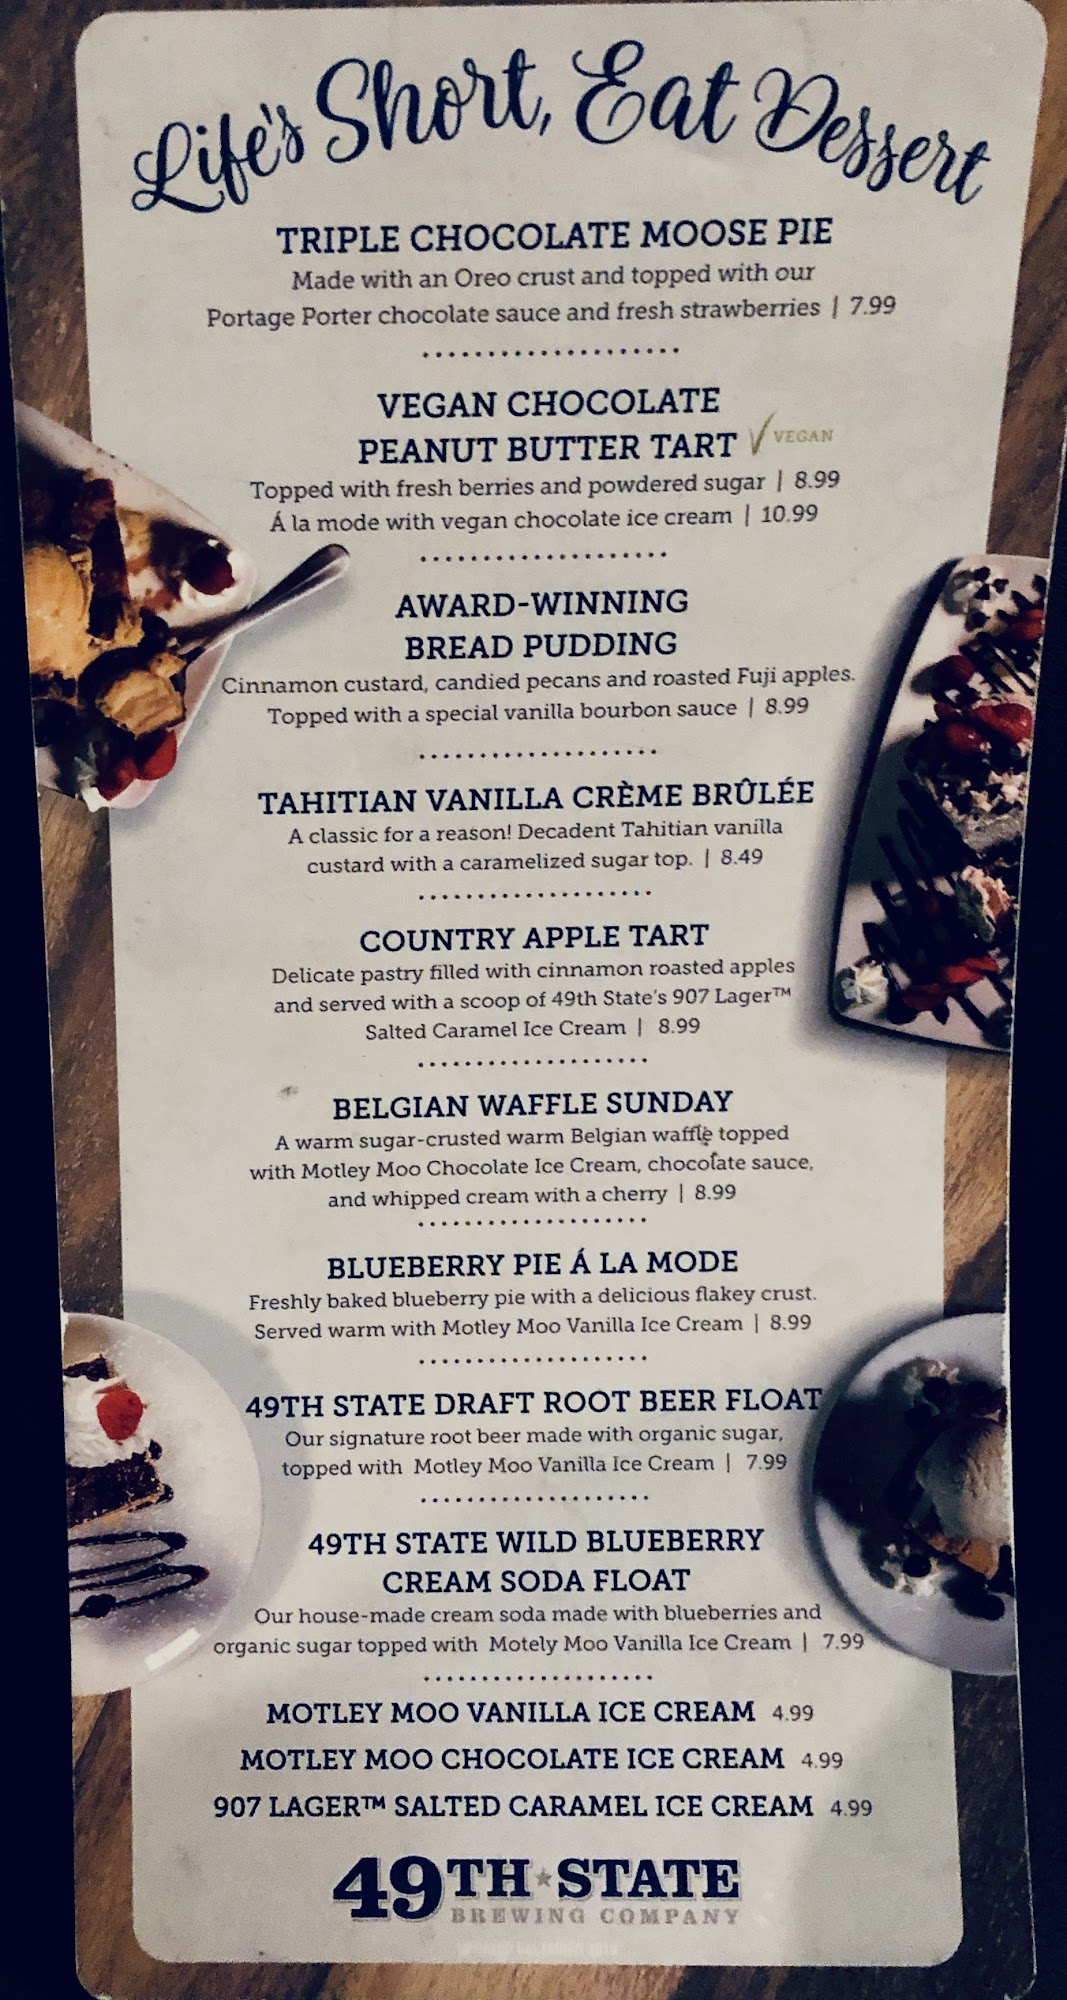 Life's Short, Eat Dessert
TRIPLE CHOCOLATE MOOSE PIE
Made with an Oreo crust and topped with our
Portage Porter chocolate sauce and fresh strawberries | 7.99
VEGAN CHOCOLATE
PEANUT BUTTER TART VEGAN
Topped with fresh berries and powdered sugar | 8.99
Á la mode with vegan chocolate ice cream | 10.99
AWARD-WINNING
BREAD PUDDING
Cinnamon custard, candied pecans and roasted Fuji apples.
Topped with a special vanilla bourbon sauce | 8.99
TAHITIAN VANILLA CRÈME BRÛLÉE
A classic for a reason! Decadent Tahitian vanilla
custard with a caramelized sugar top. | 8.49
COUNTRY APPLE TART
Delicate pastry filled with cinnamon roasted apples
and served with a scoop of 49th State's 907 Lager™
Salted Caramel Ice Cream | 8.99
BELGIAN WAFFLE SUNDAY
A warm sugar-crusted warm Belgian waffle topped
with Motley Moo Chocolate Ice Cream, chocolate sauce,
and whipped cream with a cherry | 8.99
BLUEBERRY PIE Á LA MODE
Freshly baked blueberry pie with a delicious flakey crust.
Served warm with Motley Moo Vanilla Ice Cream | 8.99
49TH STATE DRAFT ROOT BEER FLOAT
Our signature root beer made with organic sugar,
topped with Motley Moo Vanilla Ice Cream | 7.99
49TH STATE WILD BLUEBERRY
CREAM SODA FLOAT
Our house-made cream soda made with blueberries and
organic sugar topped with Motely Moo Vanilla Ice Cream | 7.99
MOTLEY MOO VANILLA ICE CREAM 4.99
MOTLEY MOO CHOCOLATE ICE CREAM 4.99
907 LAGER™ SALTED CARAMEL ICE CREAM 4.99
49TH STATE
BREWING COMPANY